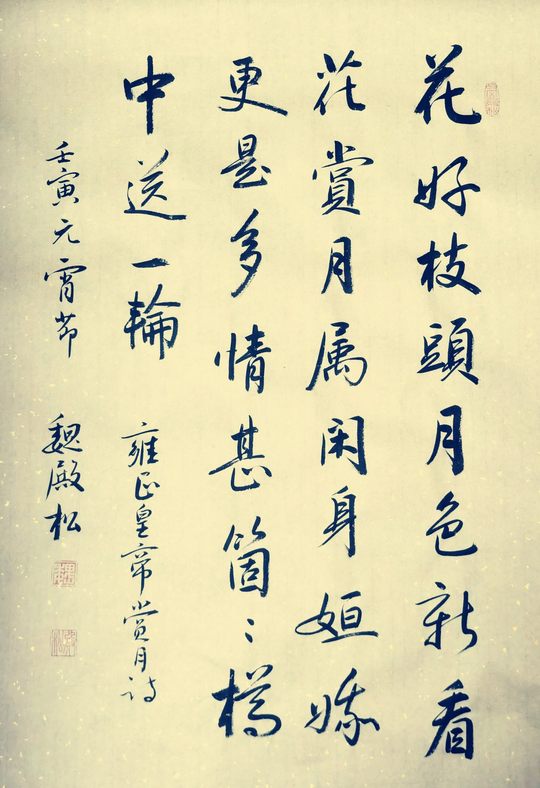 花好枝頭月色新看
花賞月属闲身姮娥
更是多情甚箇〻樽
中送一輪
雍正皇帝賞月诗
壬寅元宵节
魏殿松